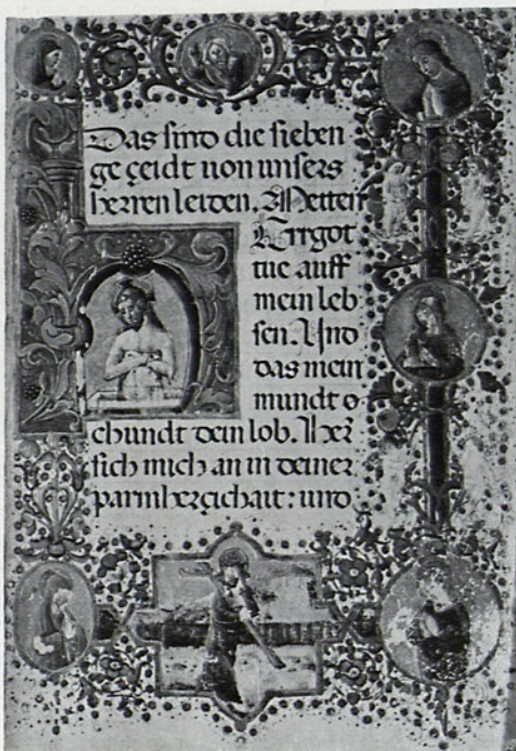 Das sind die sieben
ge çeidt uon unsers
herren leiden. Metten
Errgot
tue auff
mein leb
sen. Und
das mein
mundt
chundt dein lob. Her
sich mich an in deiner
parmherçichait: und